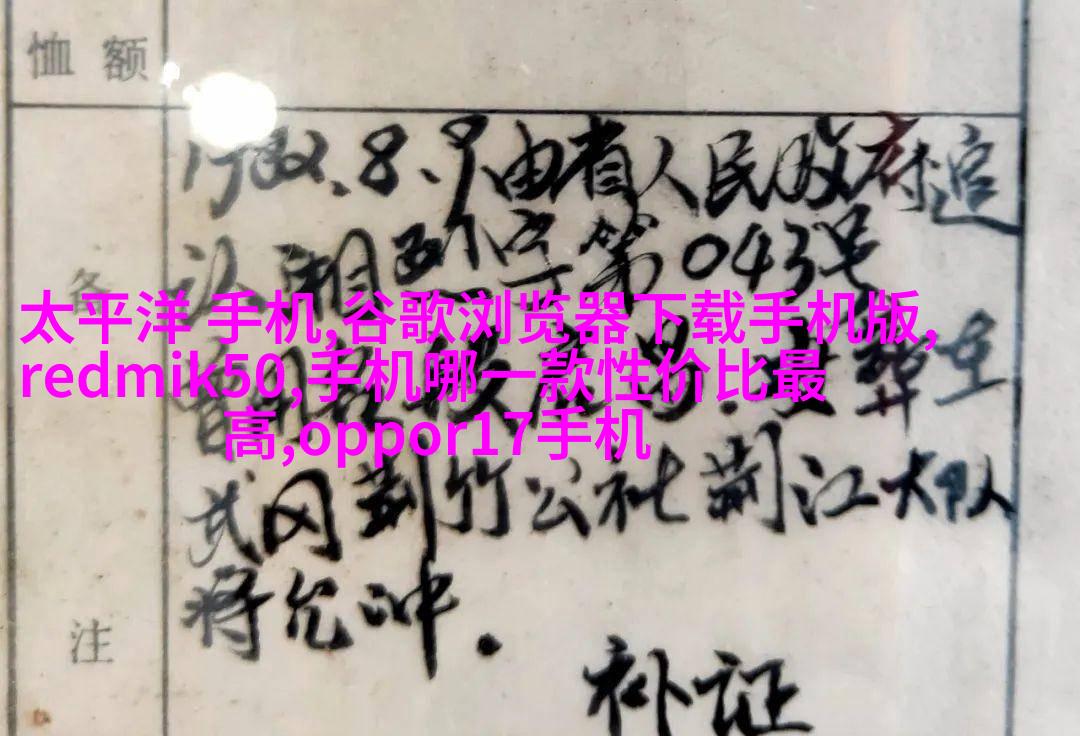 恤额
1982.8.9由省人民政府追
认湘烈字第043号
备
太平洋 手机,谷歌浏览器下载手机版,
redmik50,手机哪一款性价比最
高,oppor17手机
葬在
武冈荆竹公社荆江大队
将允冲.
注
补证